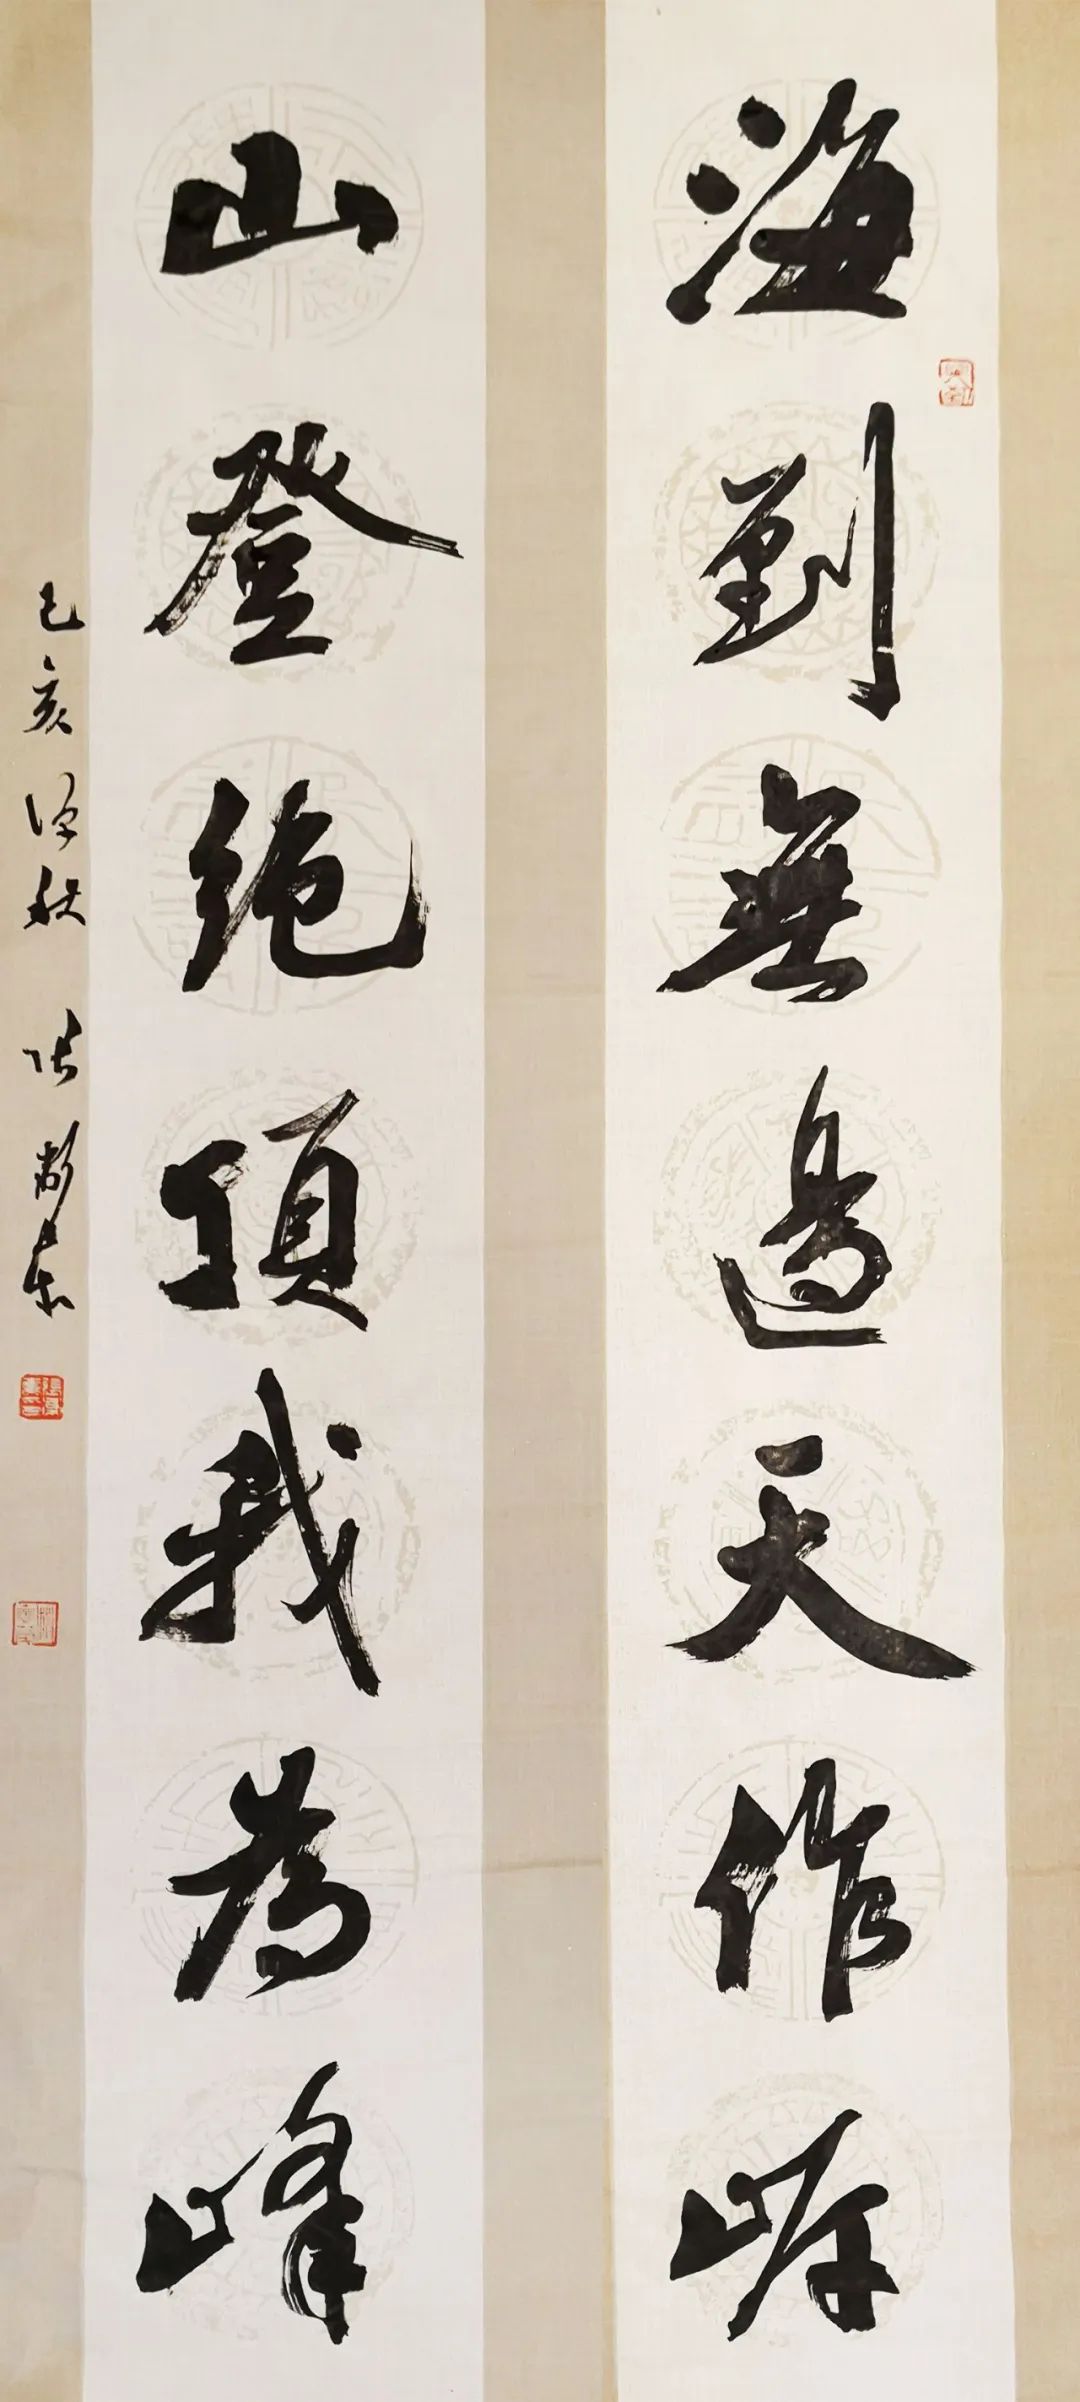 海到無邊天作岸
山登絕頂我為峰
己亥深秋 張 東